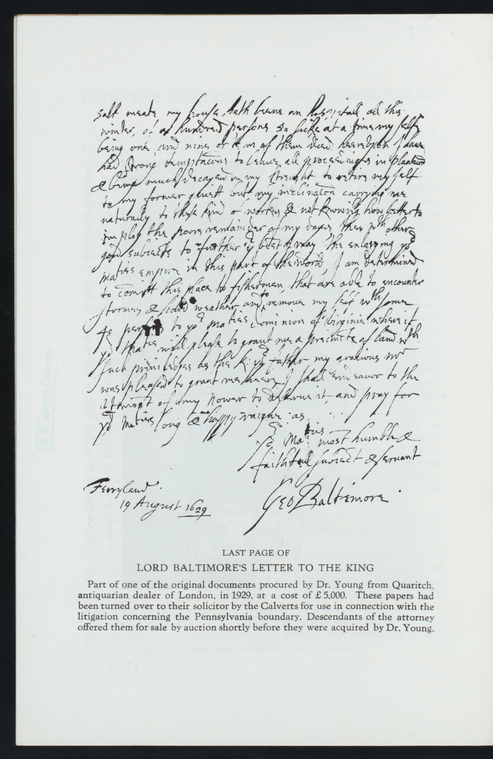 salt meate, my house hath beene an hospitall all this
winter, of a hundred persons 50 sicke at a time my self
being one and nine or ten of them dyed. hereupon I have
had strong temptations to leave all proceedings in plantations
& being much decayed in my strength to retire my self
to my former quiett but my inclination carrying me
naturally to these kind of workes & not knowing how better to
imploy the poore remaynder of my dayes then wth other
good subjects to further ye best I may the enlarging yor
maties empire in this part of the world I am determined
to committ this place to fishermen that are able to encounter
stormes & hard weather and remove my self wth some
40 persons to yor Maties dominion of Virginia where if
yor Matie will please to grant me a precinct of land wth
such priviledges as the King father my gracious mr
was pleased to grant me here, I shall endeavor to the
utmost of my power to deserve it and pray for
yor Maties long & happy raigne as
yor Maties most humble &
faithfull subject & servant
Ferryland
19 August 1629
Geo Baltimore
LAST PAGE OF
LORD BALTIMORE'S LETTER TO THE KING
Part of one of the original documents procured by Dr. Young from Quaritch,
antiquarian dealer of London, in 1929, at a cost of £5,000. These papers had
been turned over to their solicitor by the Calverts for use in connection with the
litigation concerning the Pennsylvania boundary. Descendants of the attorney
offered them for sale by auction shortly before they were acquired by Dr. Young.